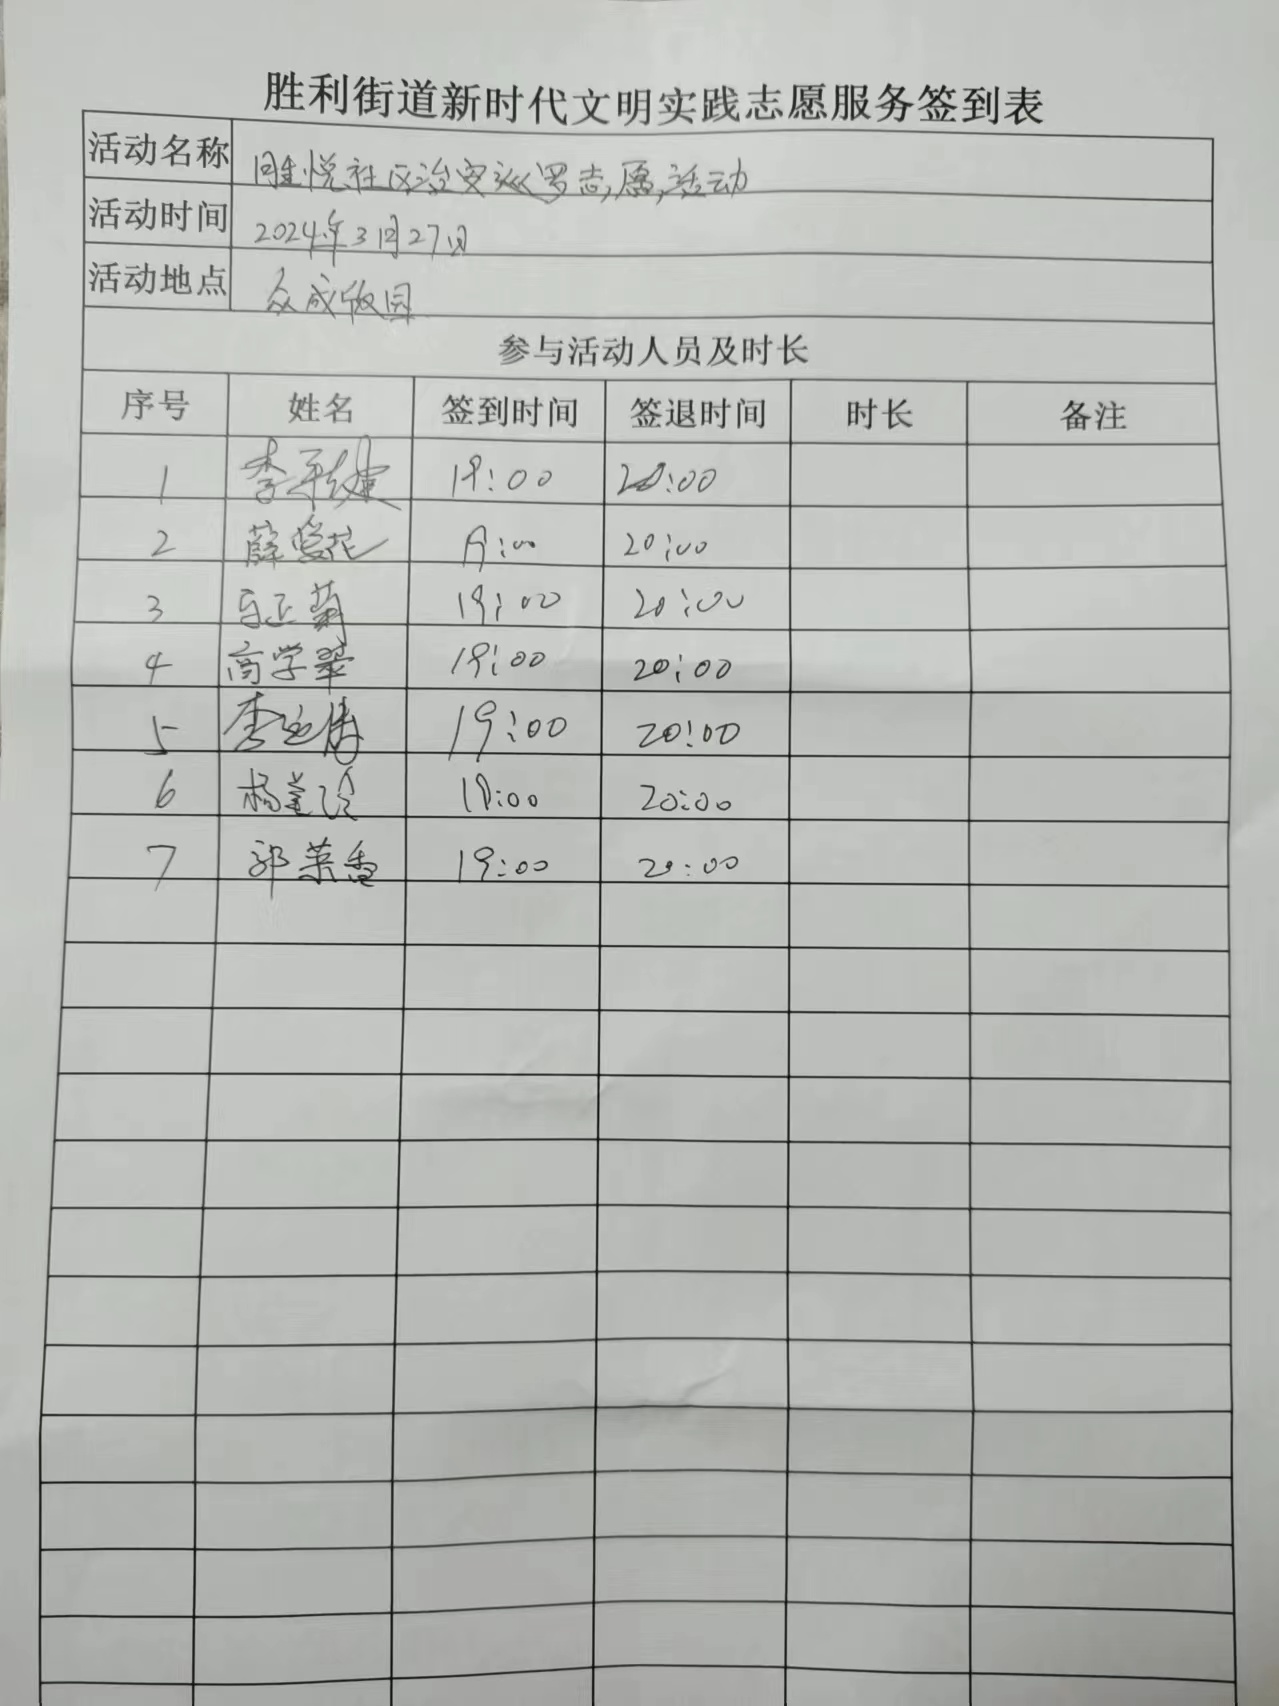 胜利街道新时代文明实践志愿服务签到表
活动名称 胜悦社区治安巡罗志愿活动
活动时间 2024年3月27日
活动地点 众成饭园
参与活动人员及时长
序号 姓名 签到时间 签退时间 时长 备注
1 李 19:00 20:00
2 薛爱花 19:00 20:00
3 马正菊 19:00 20:00
4 商学翠 19:00 20:00
5 李 19:00 20:00
6 杨 19:00 20:00
7 郭荣香 19:00 20:00